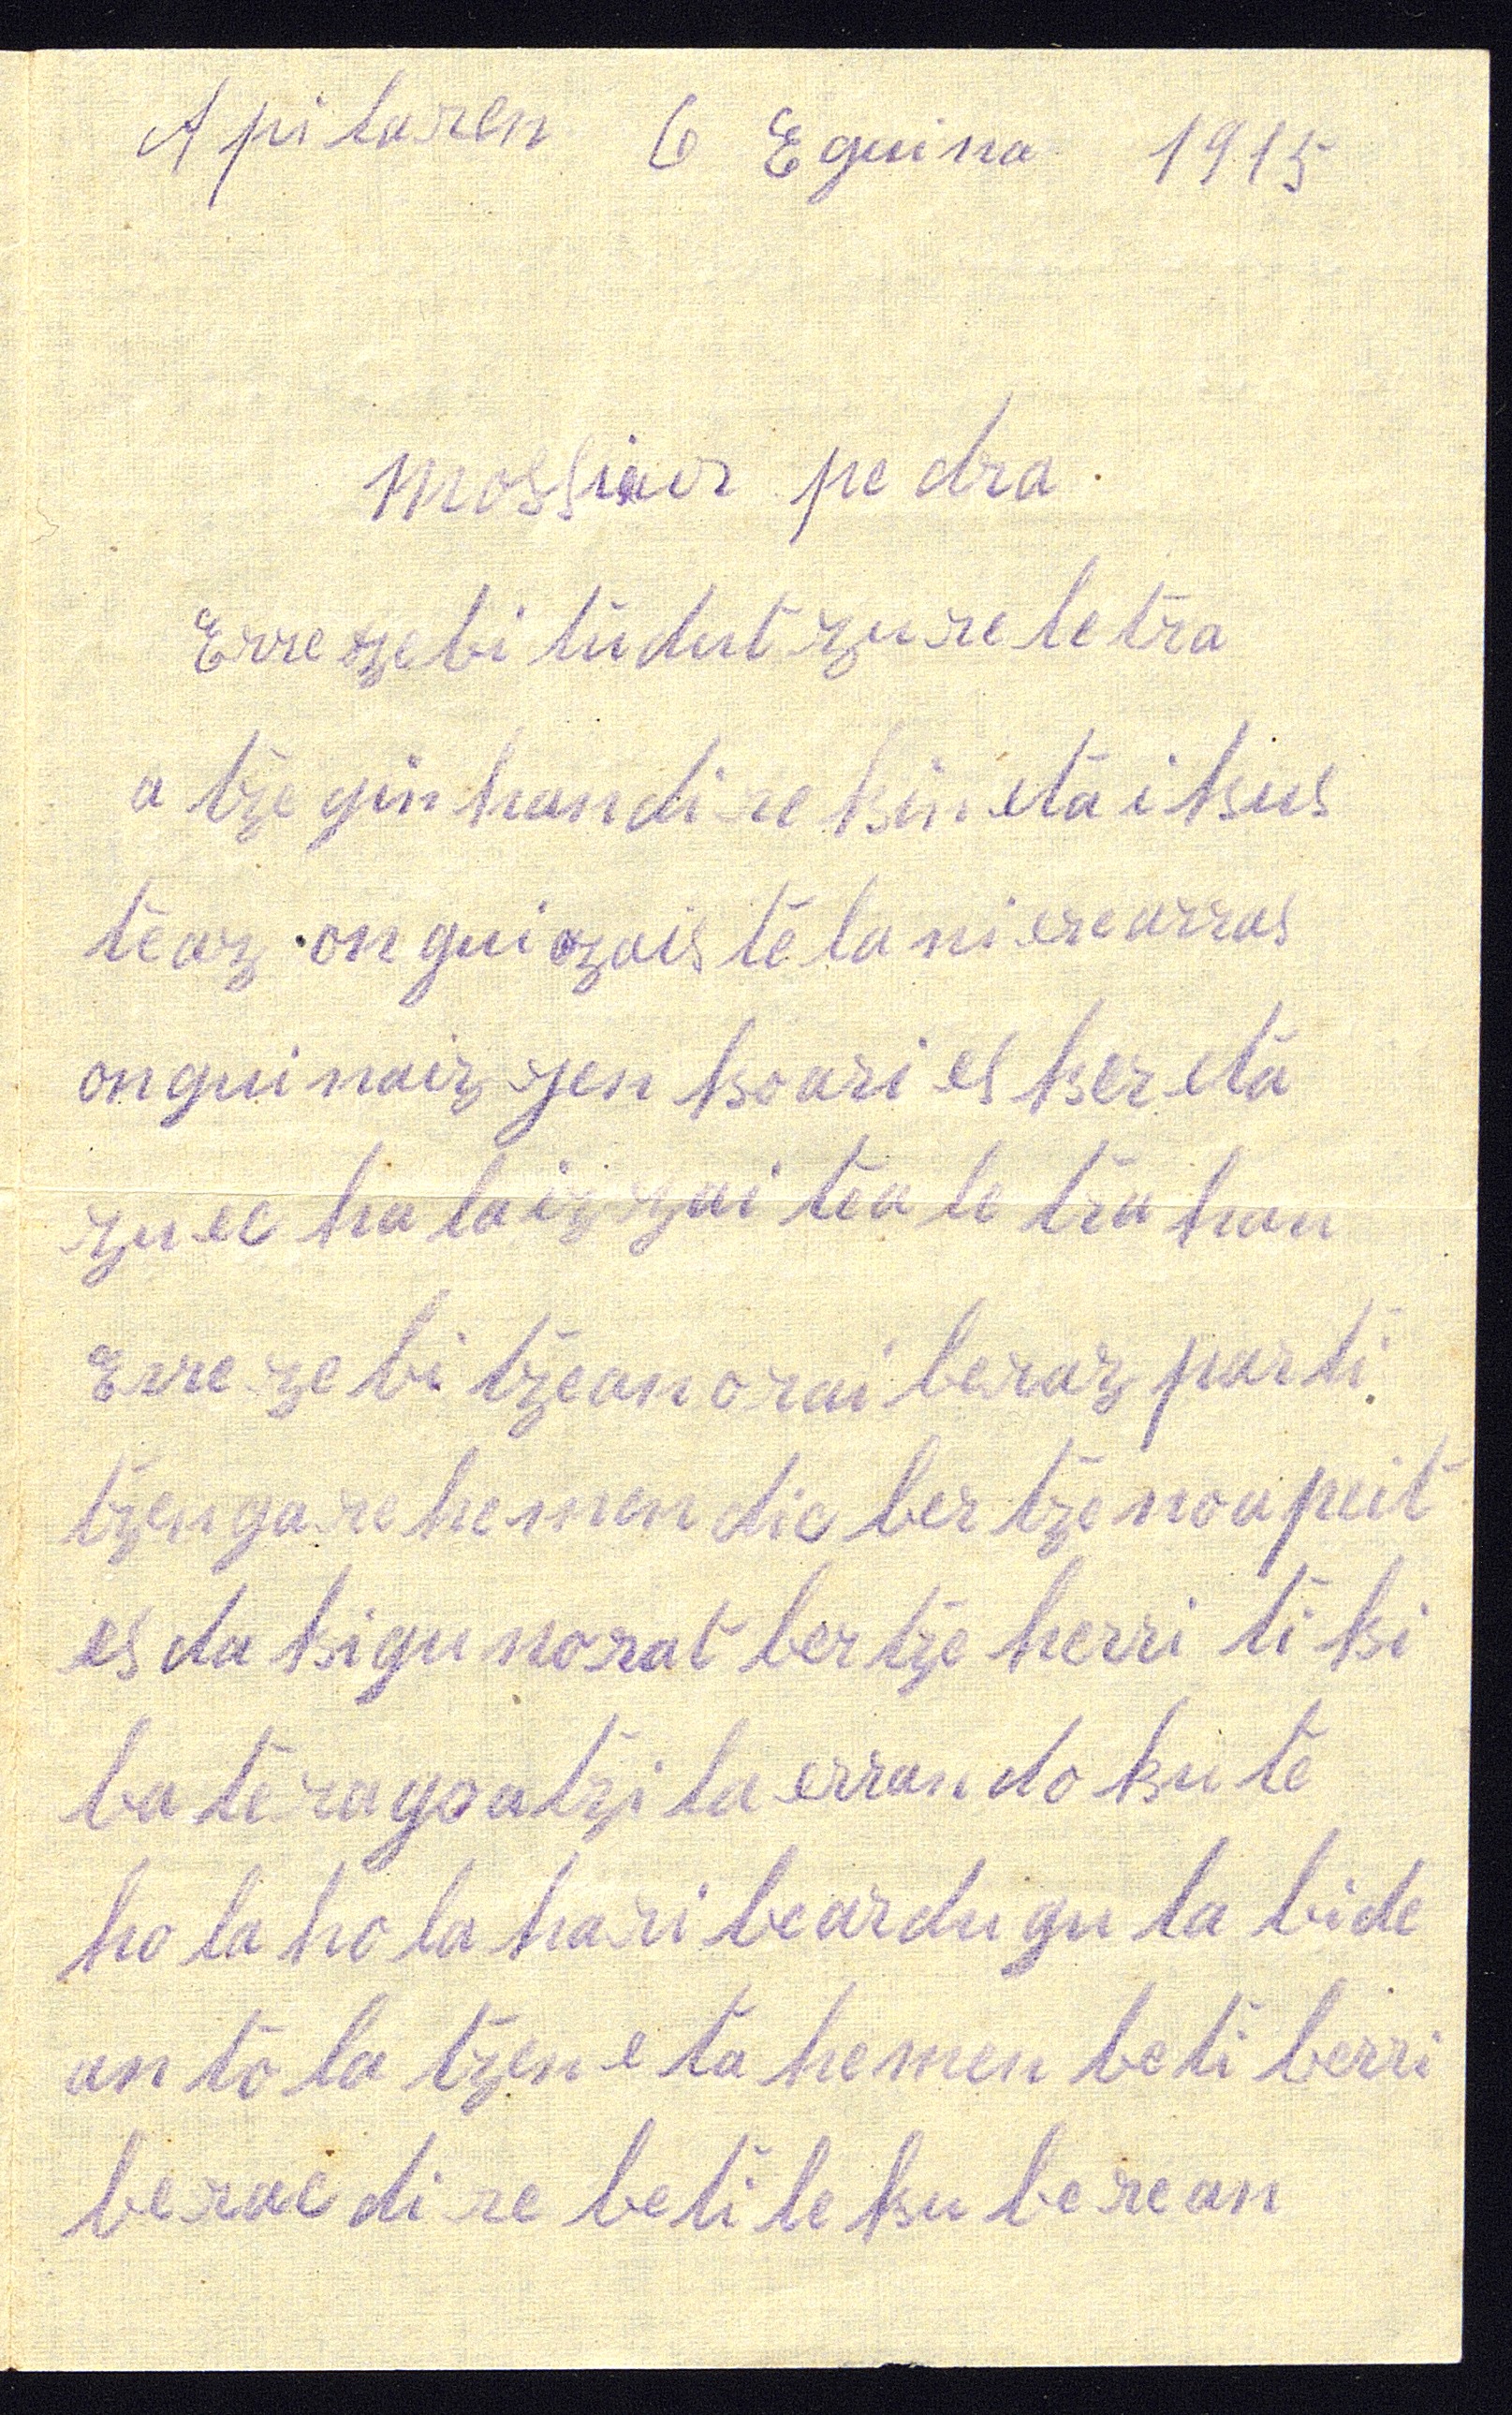 Apilaren 6 Eguina 1915
Mossiur pedra.
Errezebitudut zure letra
atzegin handirekin eta ikus
teaz onguizaistela ni ere arras
ongui naiz jenkoari esker eta
zuec hala izzaitea letra hau
Errezebitzean orai beraz parti
tzengare hemendic bertzenoapeit
es dakigu norat bertze herri tiki
batera goatzila errandokute
hola hola hari beardugula bide
antolatzen eta hemen beti berri
berac dire beti leku berean